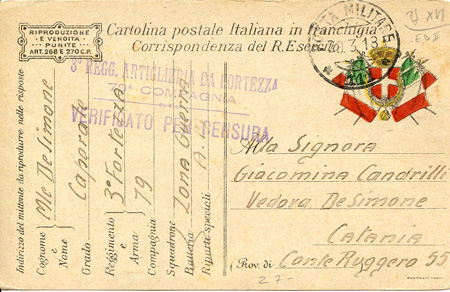 RIPRODUZIONE
E VENDITA
PUNITE
ART. 268 E 270 C.P.
Cartolina postale Italiana in franchigia
Corrispondenza del R. Esercito
POSTA MILITARE
3.18
3° REGG. ARTIGLIERIA DA FORTEZZA
COMPAGNIA
VERIFICATO PER CENSURA
Indirizzo del mittente da riprodurre nelle risposte
Cognome e Nome Mle DeSimone
Grado Caporale
Reggimento e Arma 3° Fortezza
Compagnia 79
Squadrone
Batteria Zona Guerra
Riparti speciali A.
Alla Signora
Giacomina Candrilli
Vedova DeSimone
Catania
(Prov. di Conte Ruggero 55
27-